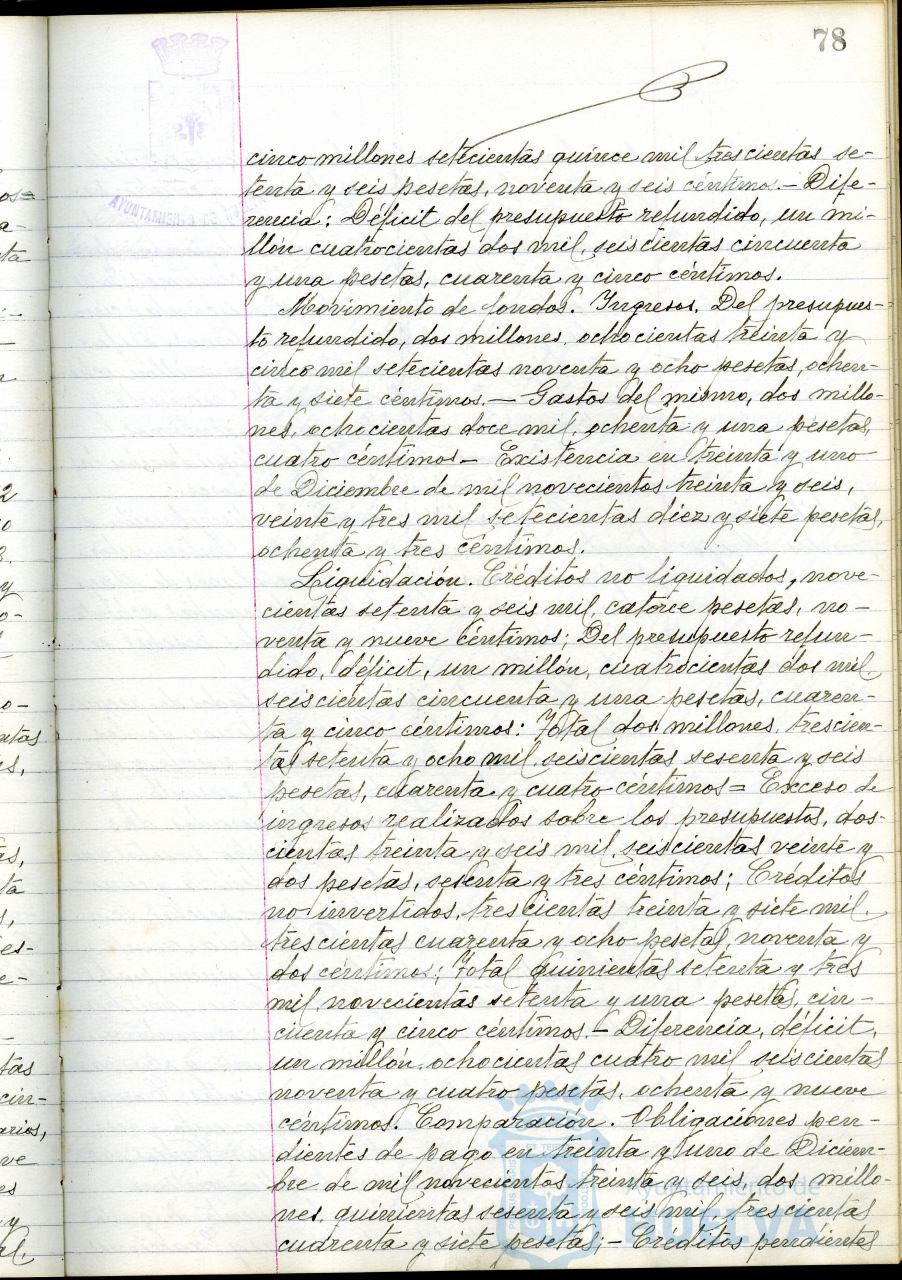 78
AYUNTAMIENTO DE
cinco millones setecientas quince mil trescientas se-
tenta y seis pesetas, noventa y seis céntimos.- Dife-
rencia: Déficit del presupuesto refundido, un mi-
llón cuatrocientas dos mil, seiscientas cincuenta
y una pesetas, cuarenta y cinco céntimos.
Movimiento de fondos. Ingresos. Del presupues-
to refundido, dos millones, ochocientas treinta y
cinco mil setecientas noventa y ocho pesetas, ochen-
ta y siete céntimos.- Gastos del mismo, dos millo-
nes, ochocientas doce mil, ochenta y una pesetas,
cuatro céntimos- Existencia en treinta y uno
de Diciembre de mil novecientos treinta y seis,
veinte y tres mil setecientas diez y siete pesetas,
ochenta y tres céntimos.
Liquidación. Créditos no liquidados, nove-
cientas setenta y seis mil catorce pesetas, no-
venta y nueve céntimos; Del presupuesto refun-
dido, déficit, un millón, cuatrocientas dos mil,
seiscientas cincuenta y una pesetas, cuaren-
ta y cinco céntimos: Total dos millones, trescien-
tas setenta y ocho mil seiscientas sesenta y seis
pesetas, cuarenta y cuatro céntimos= Exceso de
ingresos realizados sobre los presupuestos, dos-
cientas treinta y seis mil, seiscientas veinte y
dos pesetas, sesenta y tres céntimos; Créditos
no invertidos, trescientas treinta y siete mil,
trescientas cuarenta y ocho pesetas, noventa y
dos céntimos; Total quinientas setenta y tres
mil novecientas setenta y una pesetas, cin-
cuenta y cinco céntimos.- Diferencia, déficit,
un millón, ochocientas cuatro mil seiscientas
noventa y cuatro pesetas, ochenta y nueve
céntimos. Comparación. Obligaciones pen-
dientes de pago en treinta y uno de Diciem-
bre de mil novecientos treinta y seis, dos millo-
nes, quinientas sesenta y seis mil, trescientas
cuarenta y siete pesetas;- Créditos pendientes
Ayuntamiento de
HUELVA